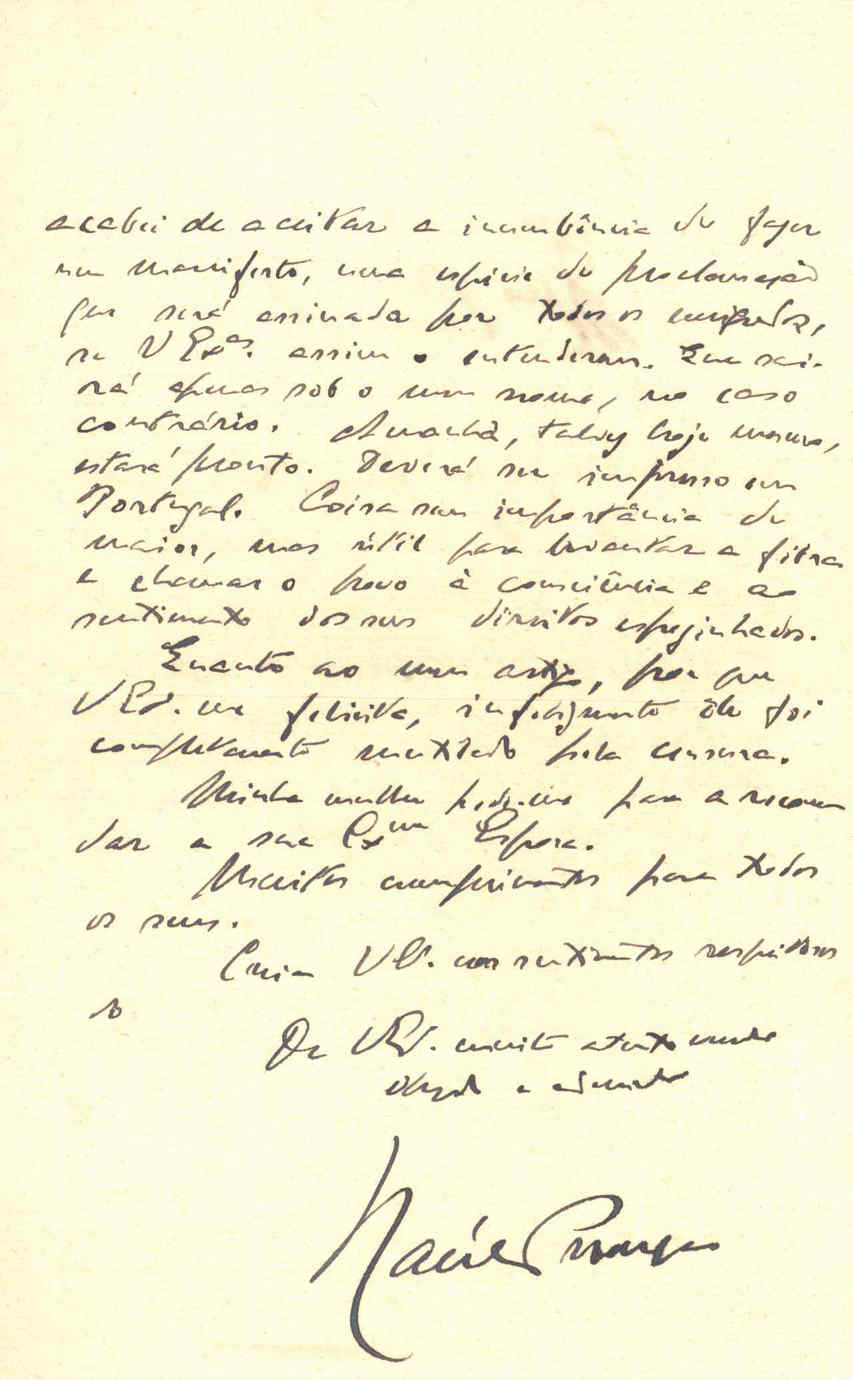 acabei de aceitar a incumbência de fazer
um manifesto, uma espécie de proclamação
que será assinada por todos os emigrados,
se V Exas. assim o entenderem. Que sai-
rá apenas sob o meu nome, no caso
contrário. Amanhã, talvez hoje mesmo,
estará pronto. Deverá ser impresso em
Portugal. Coisa sem importância de
maior, mas útil para levantar a fibra
e chamar o povo à consciência e ao
sentimento dos seus direitos espezinhados.
Quanto ao meu artigo, por que
V Ex. me felicita, infelizmente êle foi
completamente mutilado pela censura.
Minha mulher pede-me para a recomen
dar a sua Exma Esposa.
Muitos cumprimentos para todos
os seus.
Creia V E. nos sentimentos respeitosos
do
De V Ex. muito atento
obgdo e admirador